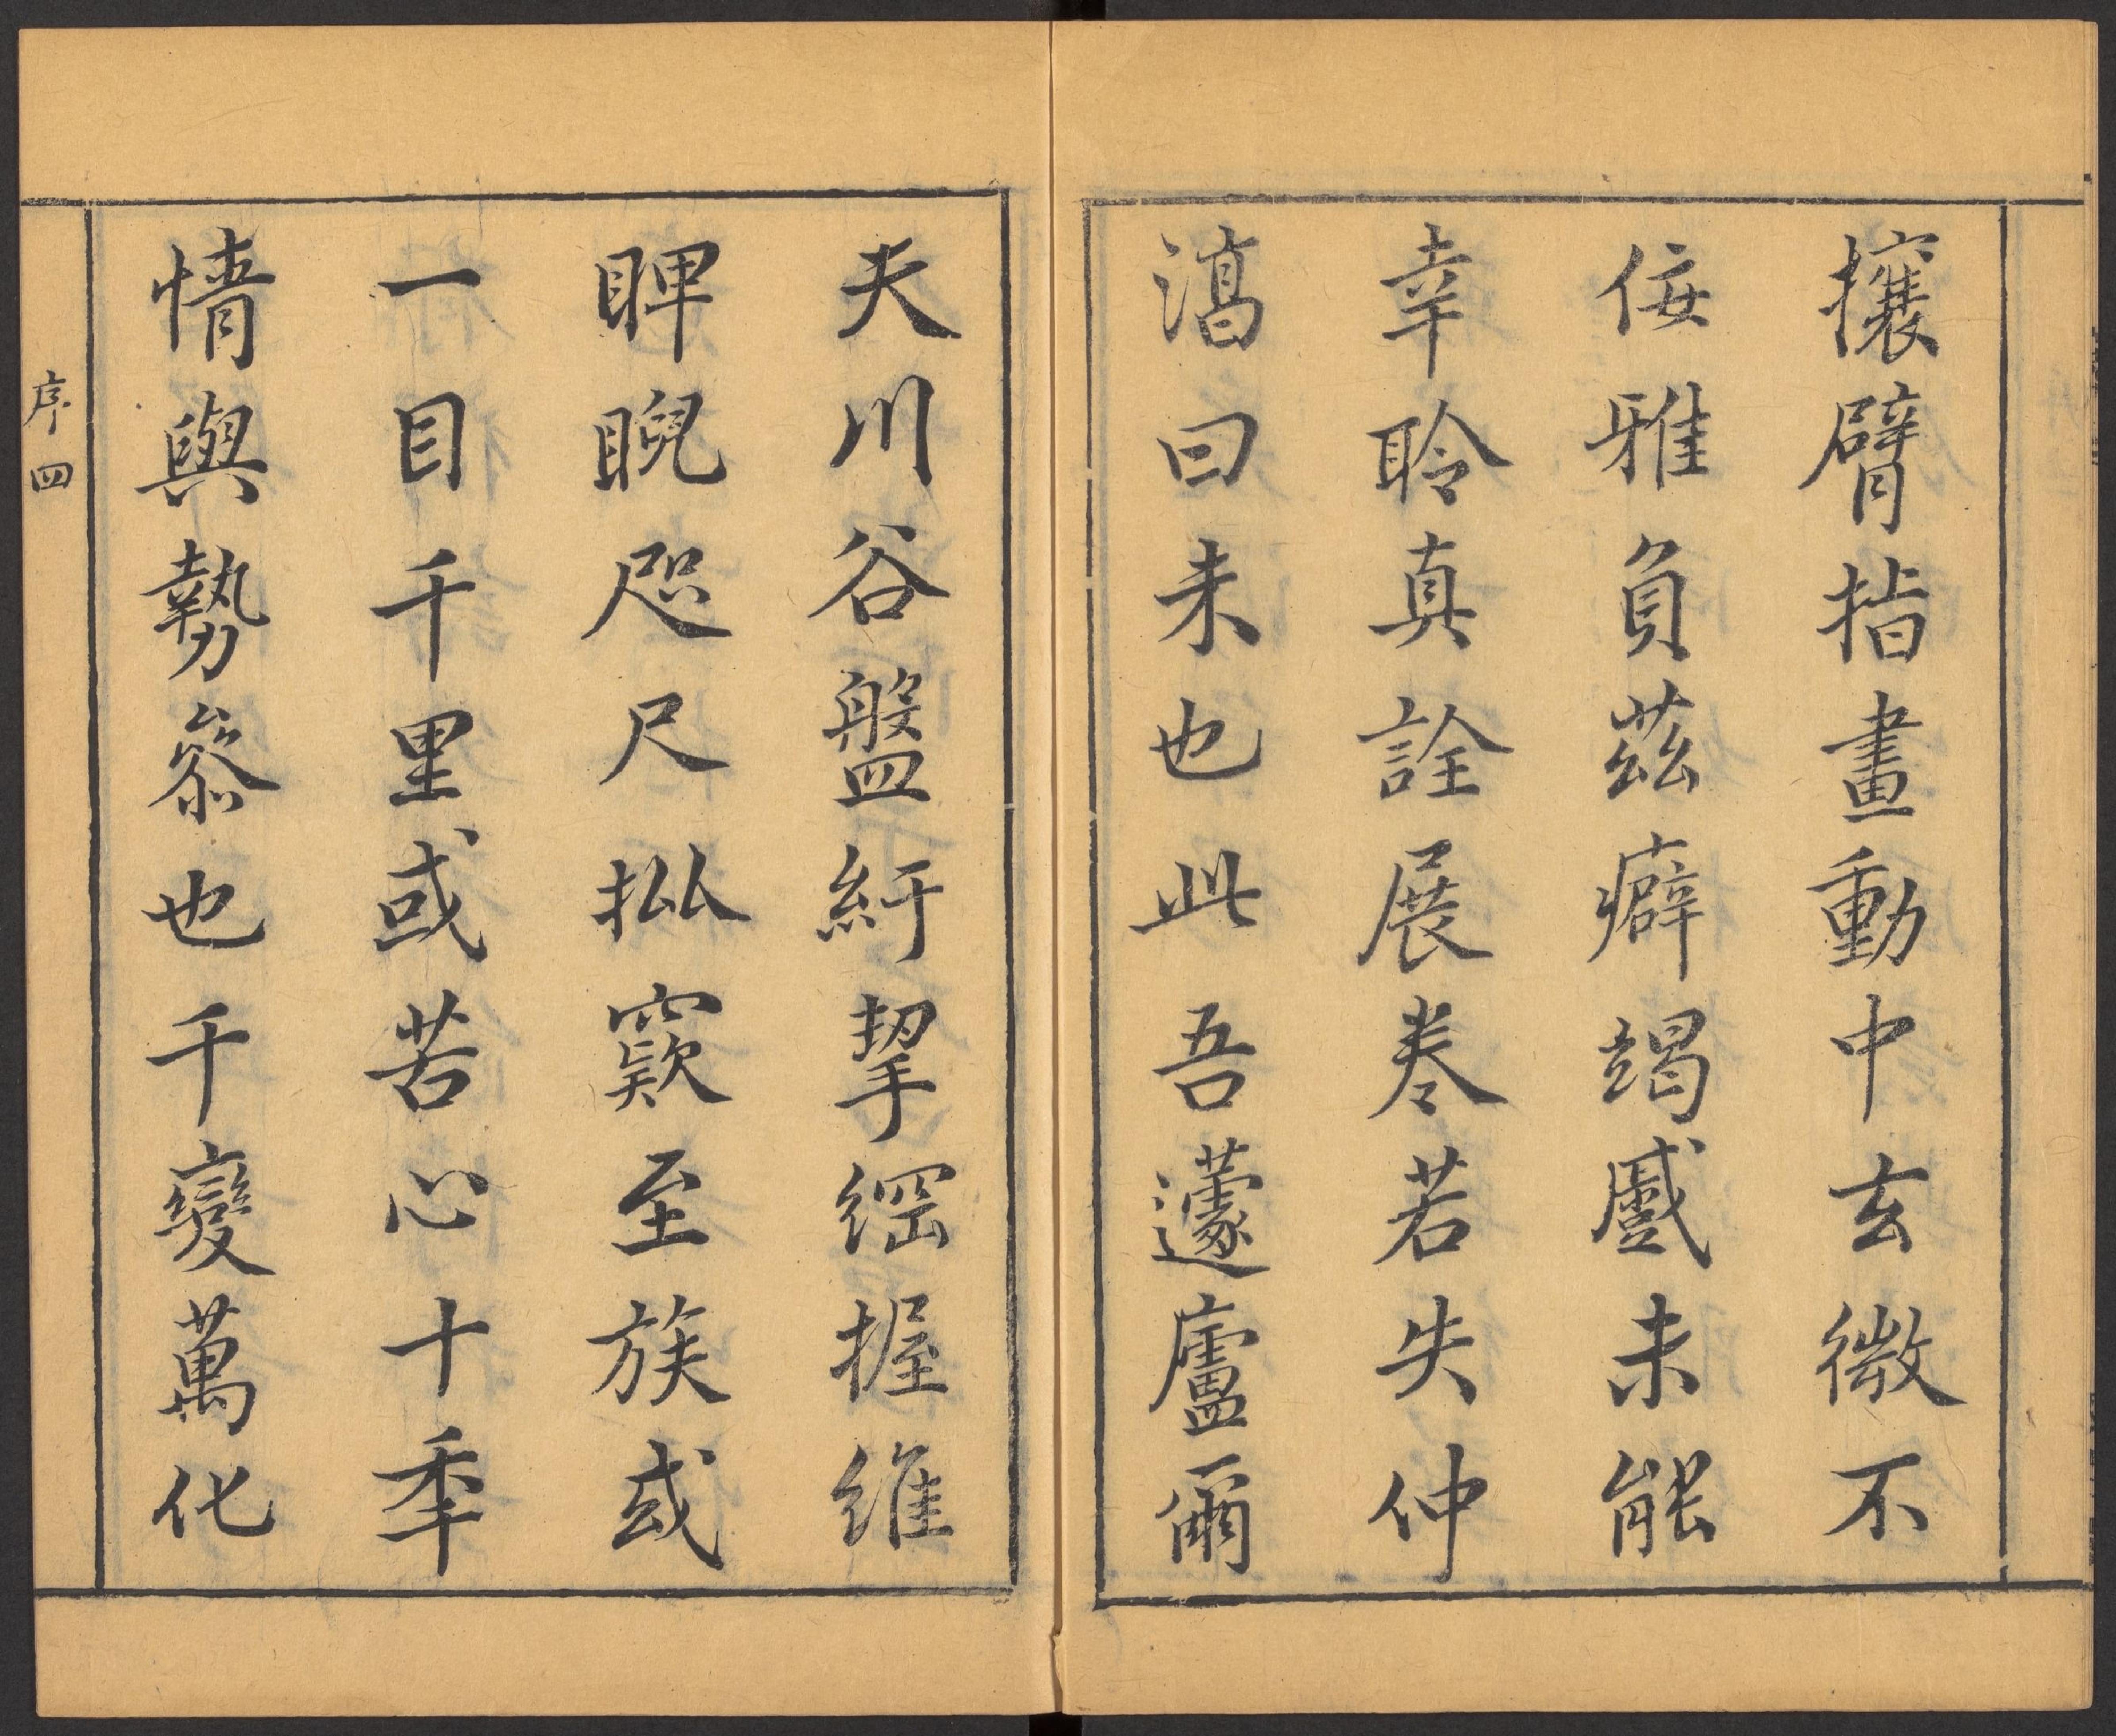 攘臂指畫動中玄微不
佞雅負茲癖竭蹙未能
幸聆真詮展卷若失仲
潟曰未也此吾蘧廬爾
夫川谷盤紆挈䌛握維
睥睨咫尺批窾至族或
一目千里或苦心十季
情與勢叅也千變萬化
序四